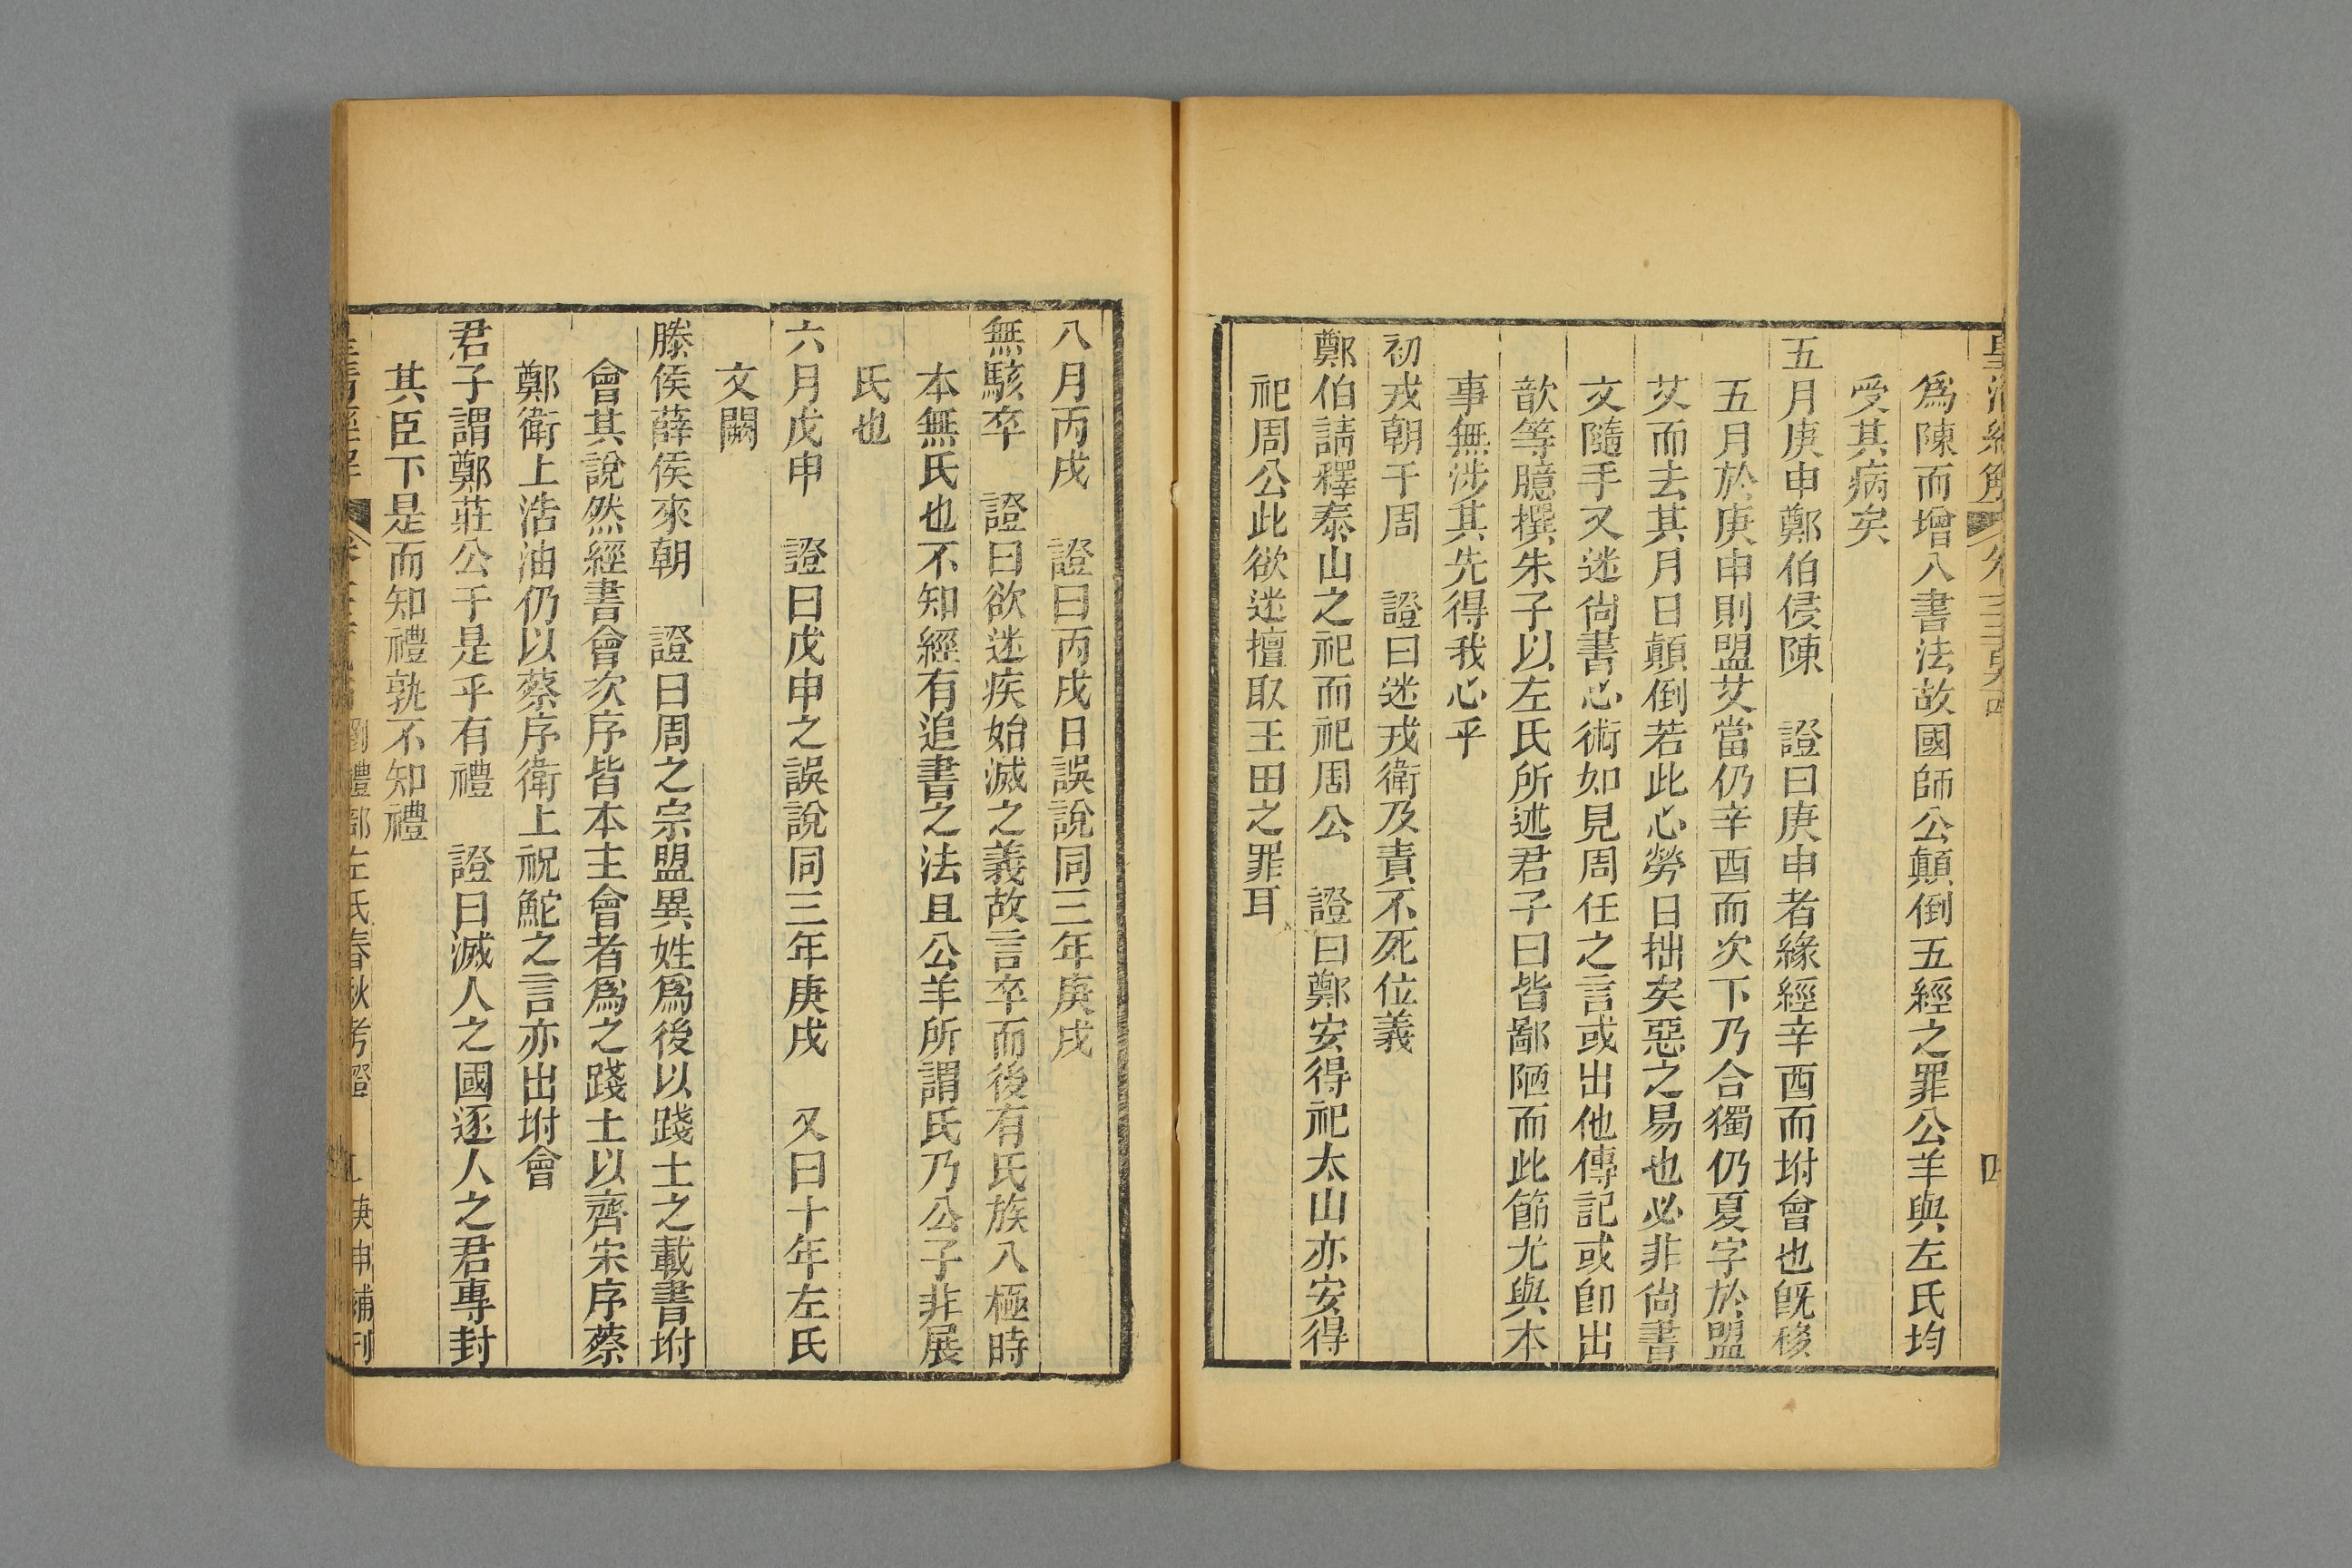 爲陳而增入書法故國師公顛倒五經之罪公羊與左氏均
受其病矣
五月庚申鄭伯侵陳　證曰庚申者緣經辛酉而坿會也旣移
五月於庚申則盟艾當仍辛酉而次下乃合獨仍夏字於盟
艾而去其月日顛倒若此心勞日拙矣惡之易也必非尙書
文隨手又迷尙書心術如見周任之言或出他傳記或卽出
歆等臆撰朱子以左氏所述君子曰皆鄙陋而此節尤與本
事無涉其先得我心乎
初戎朝于周　證曰迷戎衛及責不死位義
鄭伯請釋泰山之祀而祀周公　證曰鄭安得祀太山亦安得
祀周公此欲迷擅取王田之罪耳
八月丙戌　證曰丙戌日誤說同三年庚戌
無駭卒　證曰欲迷疾始滅之義故言卒而後有氏族八極時
本無氏也不知經有追書之法且公羊所謂氏乃公子非展
氏也
六月戊申　證曰戊申之誤說同三年庚戌　又曰十年左氏
文闕
滕侯薛侯來朝　證曰周之宗盟異姓爲後以踐土之載書坿
會其說然經書會次序皆本主會者爲之踐土以齊宋序蔡
鄭衛上浩油仍以蔡序衛上祝鮀之言亦出坿會
君子謂鄭莊公于是乎有禮　證曰滅人之國逐人之君專封
其臣下是而知禮孰不知禮
劉禮部左氏春秋考證　庚申補刊